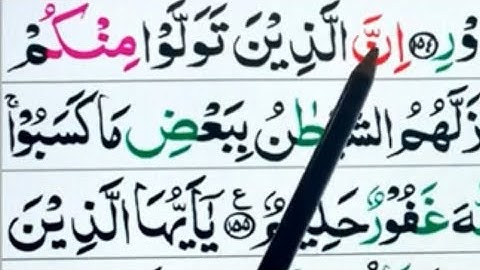 وْرِ ﴿١٥٤﴾ اِنَّ الَّذِيْنَ تَوَلَّوْا مِنْكُمْ
زَلَّهُمُ الشَّيْطٰنُ بِبَعْضِ مَا كَسَبُوْا ۚ
غَفُوْرٌ حَلِيْمٌ ﴿١٥٥﴾ ع يٰۤاَيُّهَا الَّذِيْنَ